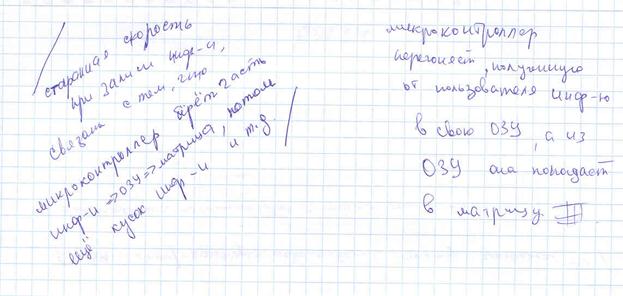 скорость
при записи инф-и,
связана с тем, что
микроконтроллер берёт часть
инф-и => ОЗУ => матрица, потом
ещё кусок инф-и и т.д.
микроконтроллер
перегоняет, полученную
от пользователя инф-ю
в свою ОЗУ, а из
ОЗУ она попадает
в матрицу.